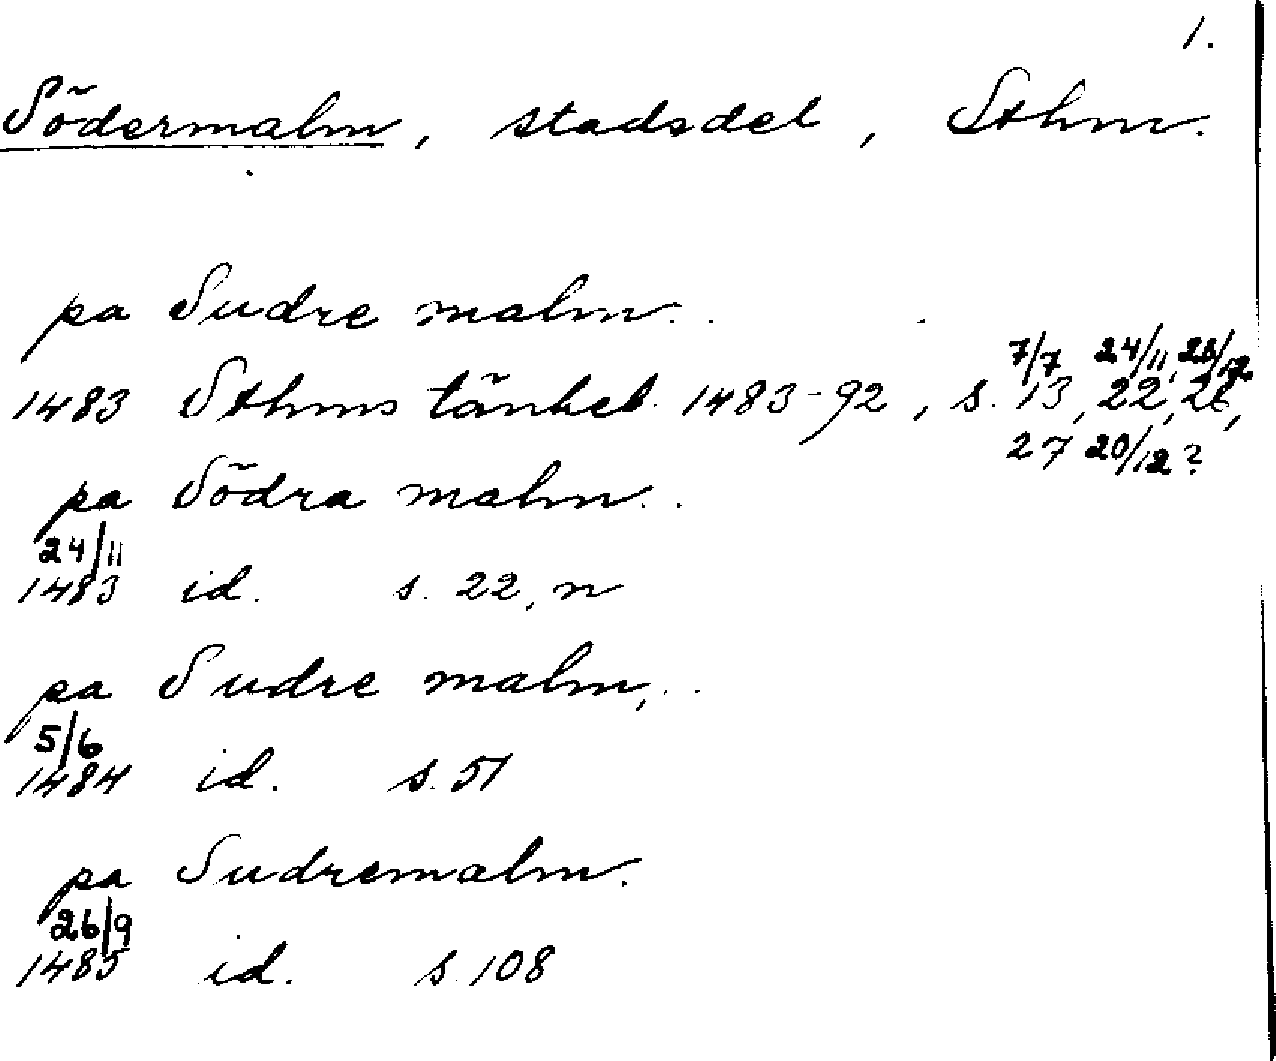 1.
Södermalm, stadsdel, Sthm.
pa Sudre malm..
7/7 24/11, 28/12
1483 Sthms tänkeb. 1483-92, s. 13, 22, 26,
27 20/12?
pa Södra malm..
24/11
1483 id. s. 22, n
pa Sudre malm,..
5/6
1484 id. s. 51
pa Sudremalm.
26/9
1485 id. s. 108